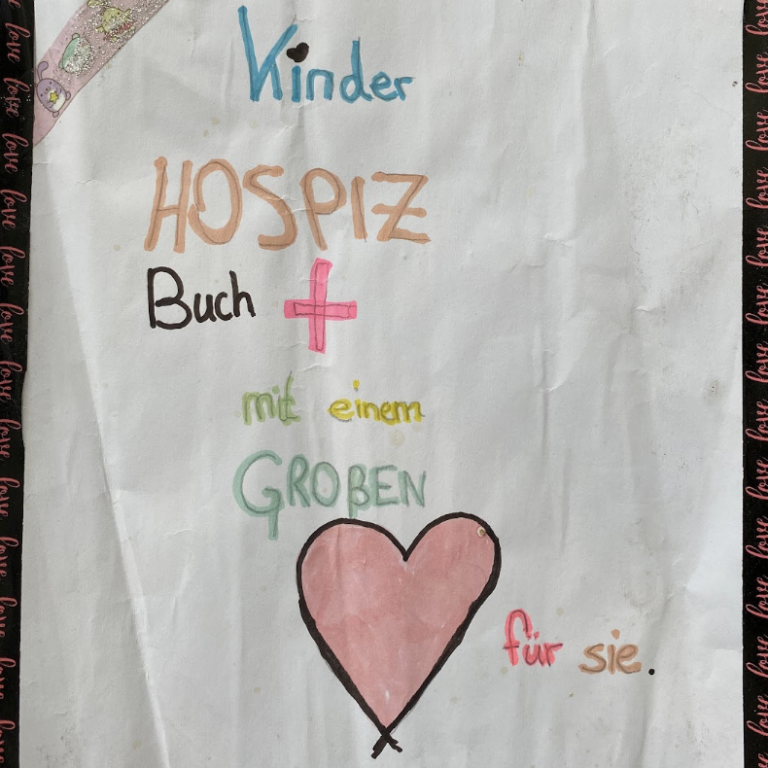 Kinder
HOSPIZ
Buch +
mit einem
GROßEN
für sie.
love love love love love love love love love love love love
love love love love love love love love love love love love